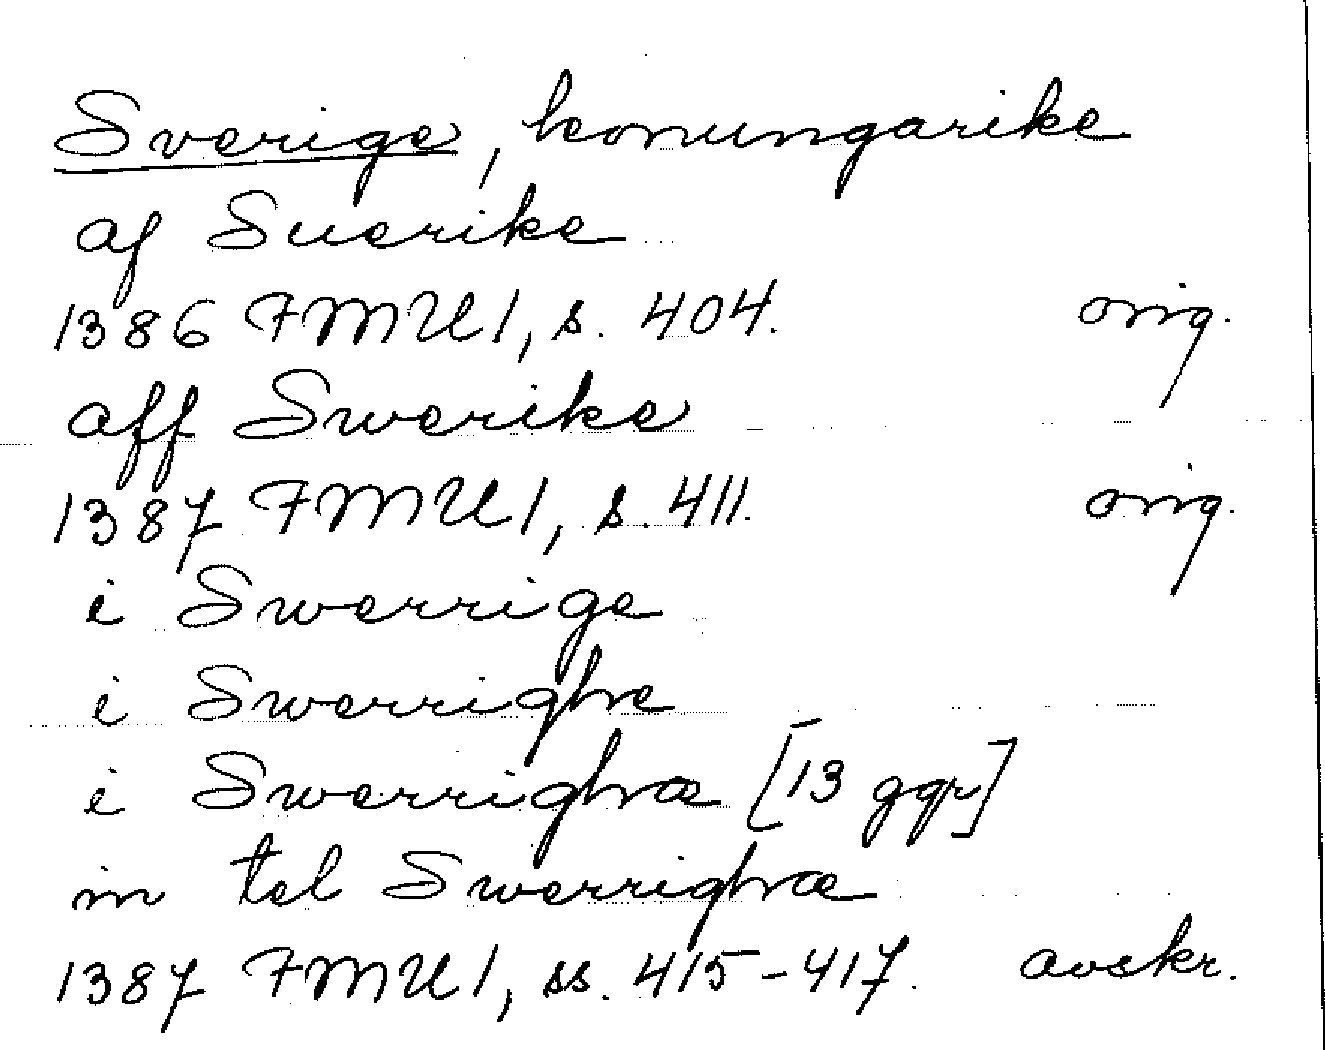 Sverige, konungarike
af Suerike
1386 FMU 1, s. 404. orig.
aff Swerike
1387 FMU 1, s. 411. orig.
i Swerrige
i Swerrighe
i Swerrighæ [13 ggr]
in tel Swerrighæ
1387 FMU 1, ss. 415-417. avskr.